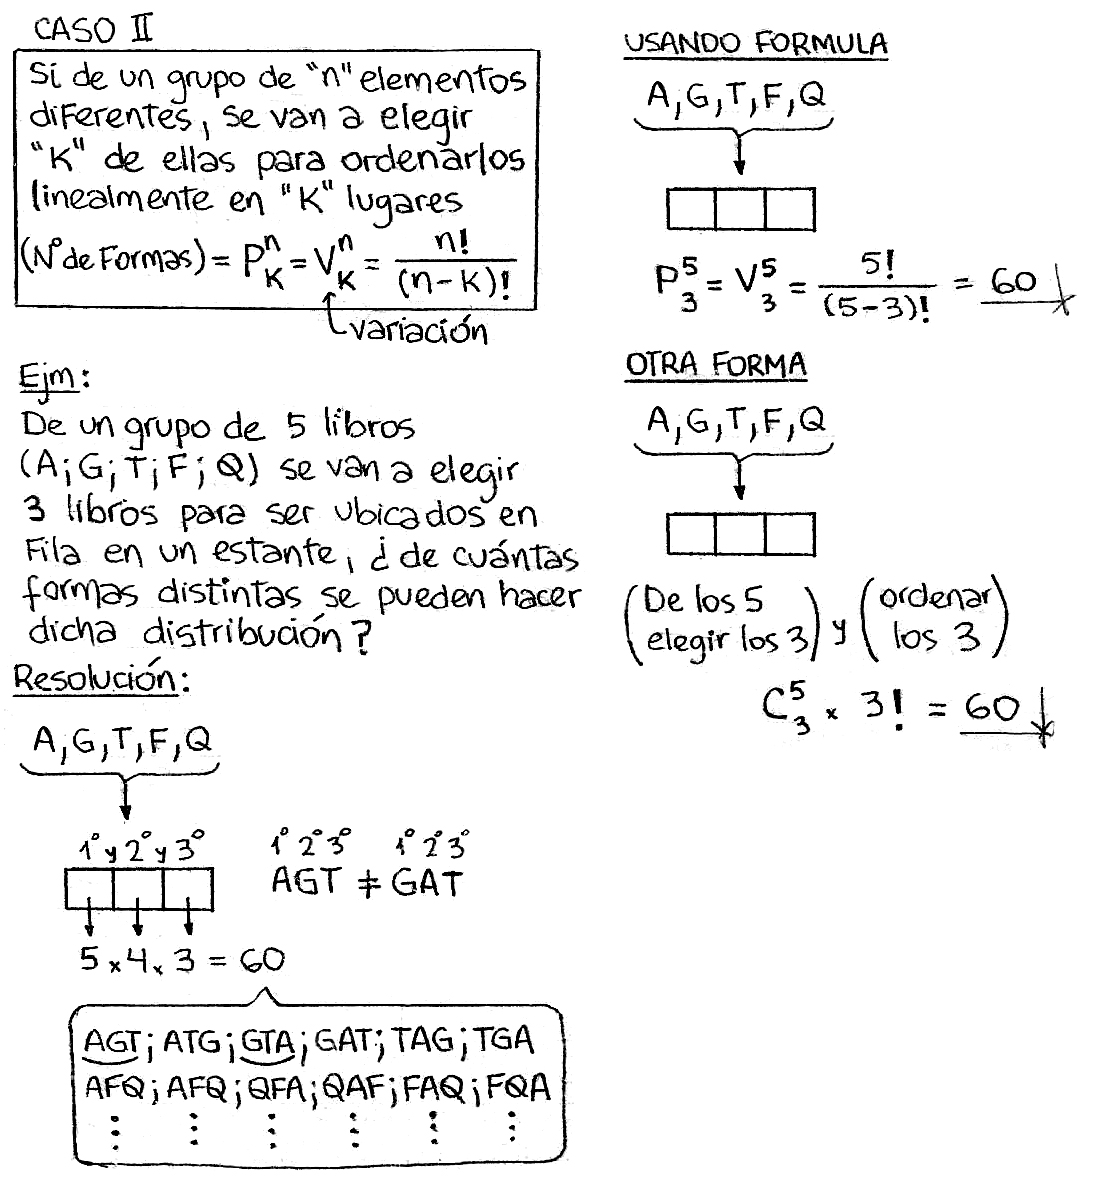 CASO II
Si de un grupo de "n" elementos
diferentes, se van a elegir
"K" de ellas para ordenarlos
linealmente en "K" lugares
(N° de Formas) = P^n_K = V^n_K = n!/(n-k)!
variación
Ejm:
De un grupo de 5 libros
(A; G; T; F; Q) se van a elegir
3 libros para ser ubicados en
Fila en un estante, ¿de cuántas
formas distintas se pueden hacer
dicha distribución?
Resolución:
A, G, T, F, Q
1° y 2° y 3°
1° 2° 3° 1° 2° 3°
AGT ≠ GAT
5 x 4 x 3 = 60
AGT; ATG; GTA; GAT; TAG; TGA
AFQ; AFQ; QFA; QAF; FAQ; FQA
USANDO FORMULA
A, G, T, F, Q
P^5_3 = V^5_3 = 5!/(5-3)! = 60
OTRA FORMA
A, G, T, F, Q
(De los 5 elegir los 3) y (ordenar los 3)
C^5_3 x 3! = 60